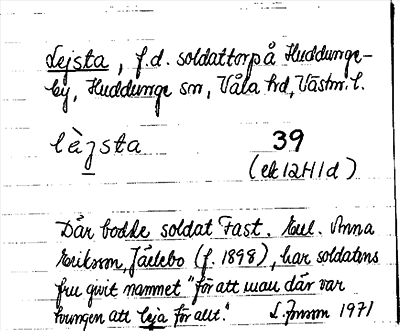 Lejsta, f.d. soldattorp å Huddunge-
by, Huddunge sn, Våla hd, Västm. l.
lèjsta 39
(ek 12H1d)
Där bodde soldat Fast. Enl. Anna
Eriksson, Järlebo (f. 1898), har soldatens
fru givit namnet "för att man där var
tvungen att leja för allt".